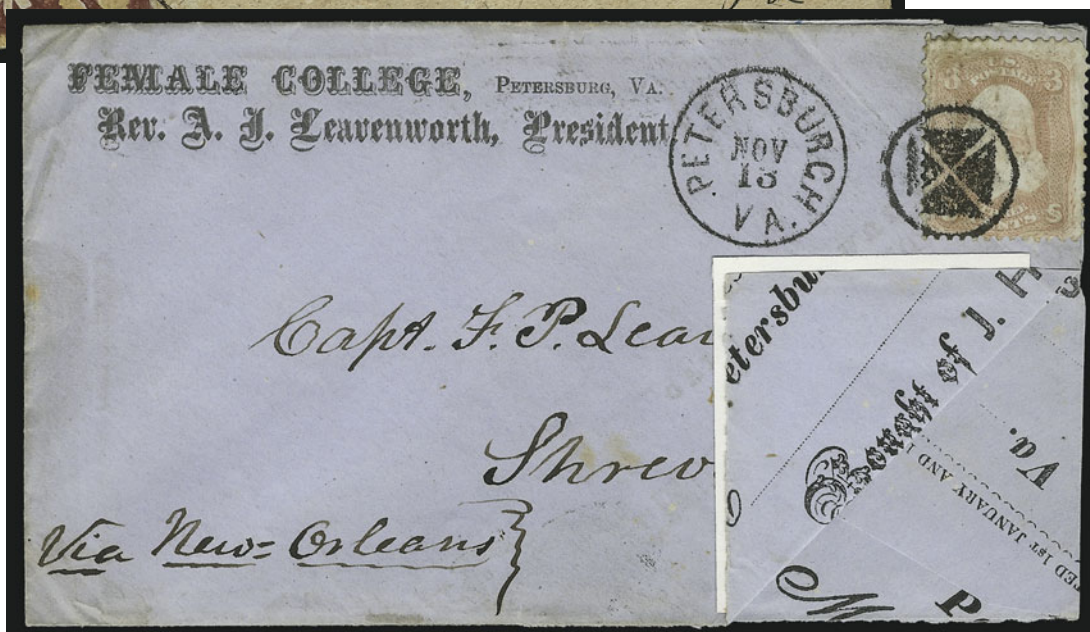 FEMALE COLLEGE, PETERSBURG, VA.
Rev. A. J. Leavenworth, President
PETERSBURGH
NOV
13
VA.
U.S.
POSTAGE
3 3
Capt. F. P. Lear
Shrev
Via New=Orleans
etersbu
Bought of J. H
Va.
ED 1ST JANUARY AND 1
M
P.